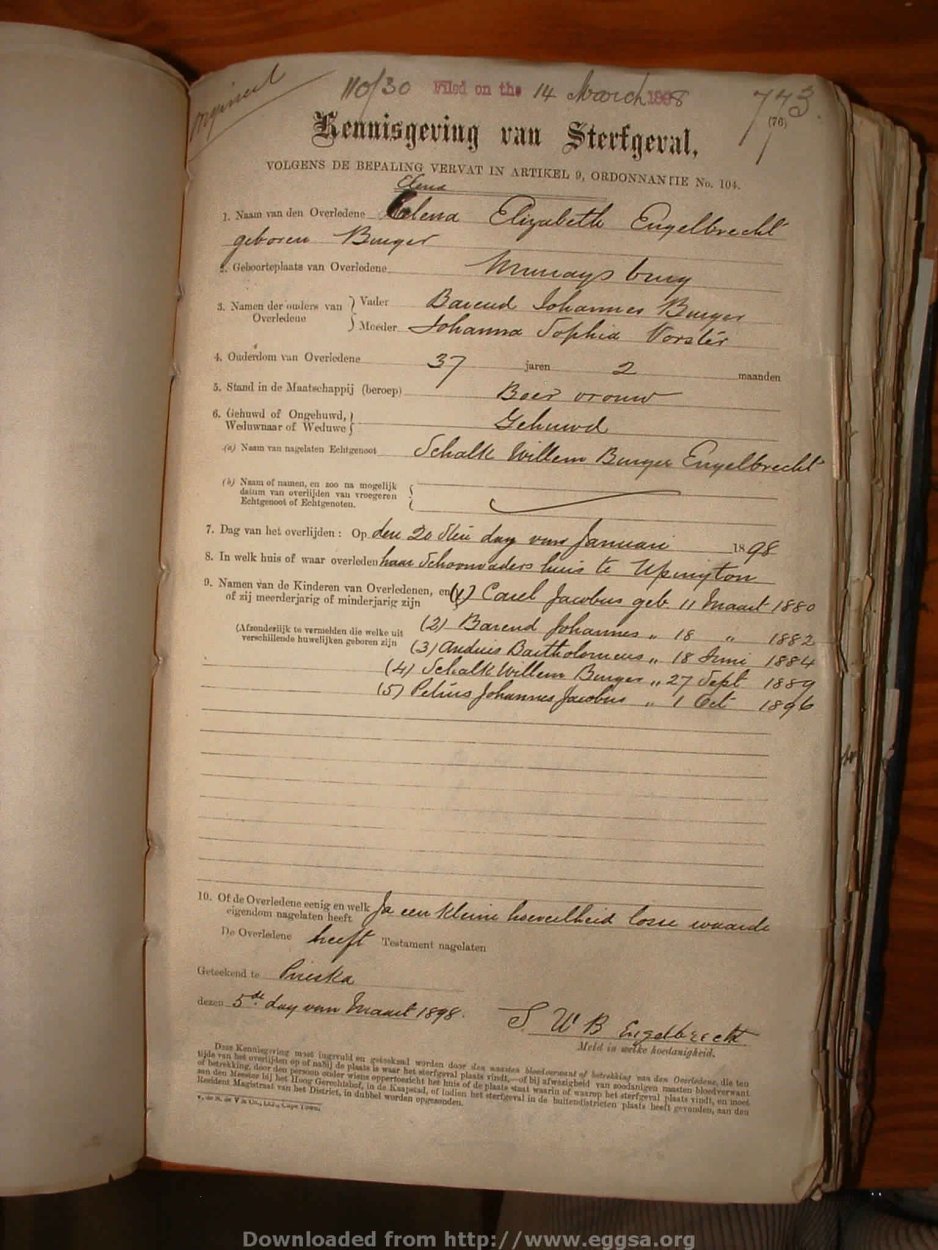 Original
110/30 Filed on the 14 March 1898 773
(76)
Kennisgeving van Sterfgeval,
VOLGENS DE BEPALING VERVAT IN ARTIKEL 9, ORDONNANTIE No. 104.
Elena
1. Naam van den Overledene Elena Elizabeth Engelbrecht
geboren Burger
2. Geboorteplaats van Overledene Murraysburg
3. Namen der ouders van Overledene } Vader Barend Johannes Burger
Moeder Johanna Sophia Vorster
4. Ouderdom van Overledene 37 jaren 2 maanden
5. Stand in de Maatschappij (beroep) Boer vrouw
6. Gehuwd of Ongehuwd, Weduwnaar of Weduwe } Gehuwd
(a) Naam van nagelaten Echtgenoot Schalk Willem Burger Engelbrecht
(b) Naam of namen, en zoo na mogelijk
datum van overlijden van vroegeren
Echtgenoot of Echtgenoten.
7. Dag van het overlijden: Op den 20 sten dag van Januari 1898
8. In welk huis of waar overleden haar Schoonvaders huis te Upington
9. Namen van de Kinderen van Overledenen, en (1) Carel Jacobus geb. 11 Maart 1880
of zij meerderjarig of minderjarig zijn
(2) Barend Johannes „ 18 „ 1882
(Afzonderlijk te vermelden die welke uit
verschillende huwelijken geboren zijn
(3) Andries Bartholomeus „ 18 Juni 1884
(4) Schalk Willem Burger „ 27 Sept 1889
(5) Petrus Johannes Jacobus „ 1 Oct 1896
10. Of de Overledene eenig en welk
eigendom nagelaten heeft Ja een kleine hoeveelheid losse waarde
De Overledene heeft Testament nagelaten
Geteekend te Prieska
dezen 5de dag van Maart 1898. S W B Engelbrecht
Meld in welke hoedanigheid.
Deze Kennisgeving moet ingevuld en geteekend worden door den naasten bloedverwant of betrekking van den Overledene, die ten
tijde van het overlijden op of nabij de plaats is waar het sterfgeval plaats vindt,—of bij afwezigheid van zoodanigen naasten bloedverwant
of betrekking, door den persoon onder wiens oppertoezicht het huis of de plaats staat waarin of waarop het sterfgeval plaats vindt, en moet
aan den Meester bij het Hoog Gerechtshof, in de Kaapstad, of indien het sterfgeval in de buitendistricten plaats heeft gevonden, aan den
Resident Magistraat van het District, in dubbel worden opgezonden.
V. de S. de V & Co., Ltd., Cape Town.
Downloaded from http://www.eggsa.org